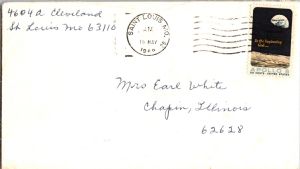 4604 A Cleveland
St Louis Mo 63110
SAINT LOUIS, MO.
15 MAY
1969
In the beginning
God...
APOLLO 8
SIX CENTS · UNITED STATES
Mrs Earl White
Chapin, Illinois
62628